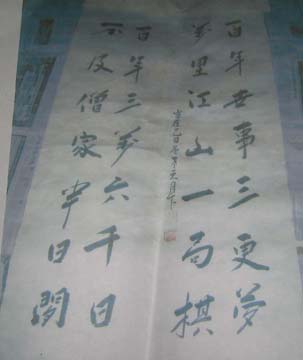 百年世事三更夢
萬里江山一局棋
百年三萬六千日
不及僧家半日閒